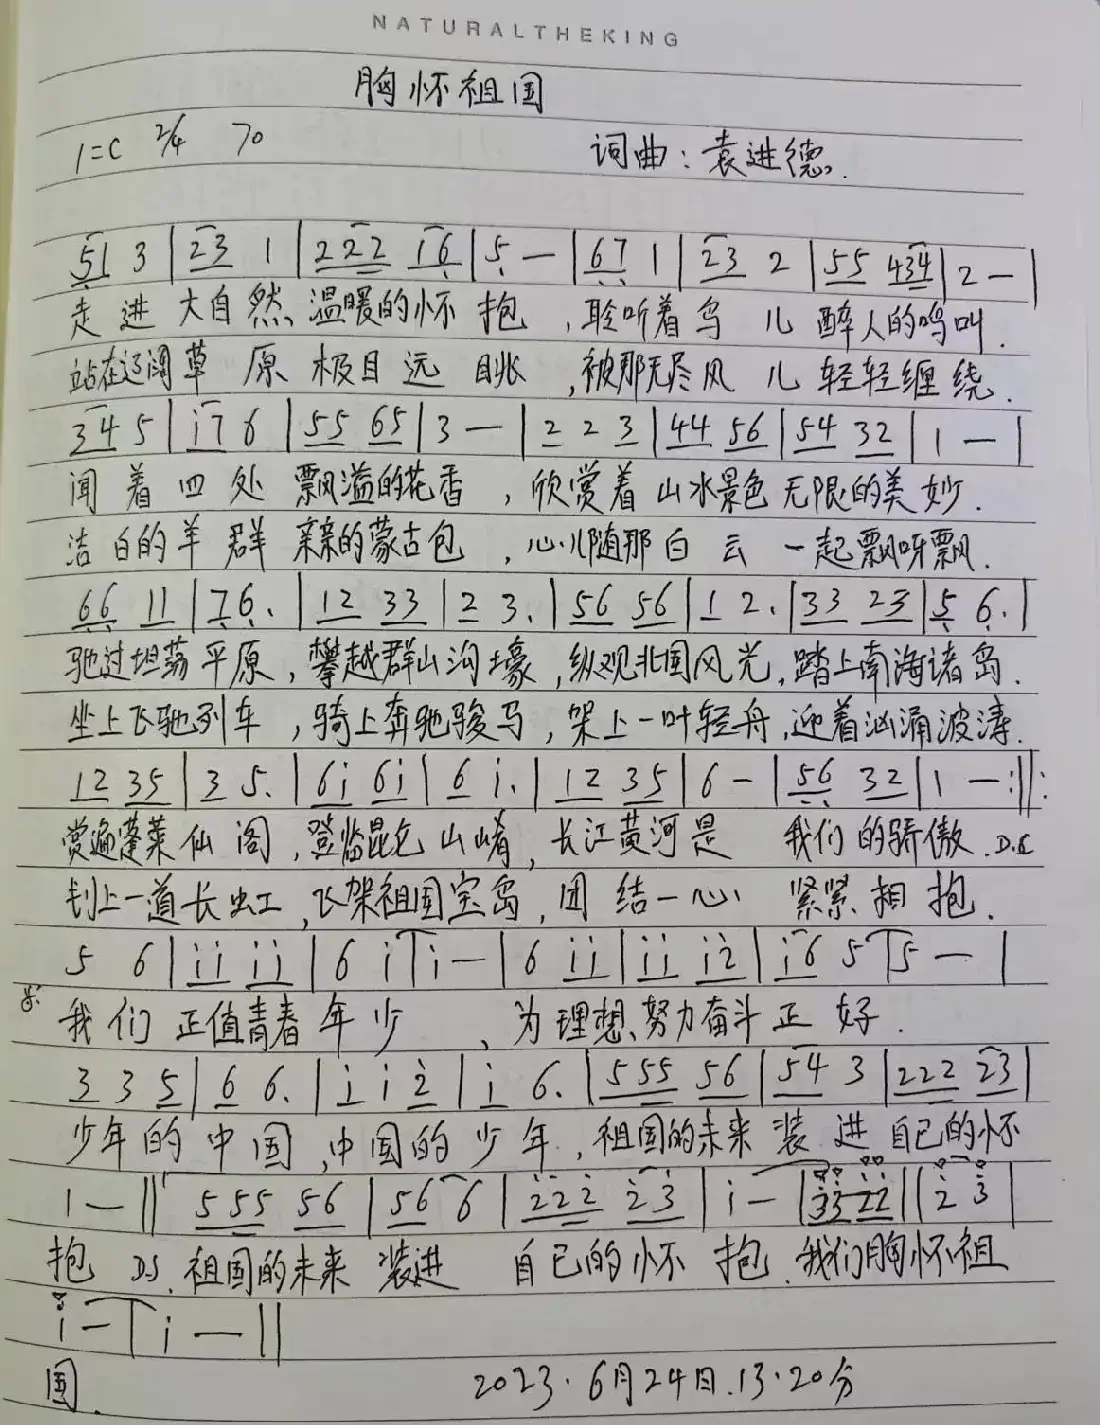 NATURALTHEKING
胸怀祖国
1=C 2/4 70 词曲：袁进德.
51 3 | 23 1 | 222 16 | 5 — | 67 1 | 23 2 | 55 434 | 2 — |
走进大自然温暖的怀抱,聆听着鸟儿醉人的鸣叫.
站在辽阔草原极目远眺,被那无尽风儿轻轻缠绕.
34 5 | i7 6 | 55 65 | 3 — | 2 2 3 | 44 56 | 54 32 | 1 — |
闻着四处飘溢的花香,欣赏着山水景色无限的美妙.
洁白的羊群亲亲的蒙古包,心儿随那白云一起飘呀飘.
66 11 | 76. | 12 33 | 2 3. | 56 56 | 1 2. | 33 23 | 5 6. |
驰过坦荡平原,攀越群山沟壕,纵观北国风光,踏上南海诸岛.
坐上飞驰列车,骑上奔驰骏马,架上一叶轻舟,迎着汹涌波涛.
12 35 | 3 5. | 6i 6i | 6 i. | 12 35 | 6 - | 56 32 | 1 — :‖:
赏遍蓬莱仙阁,登临昆仑山峭,长江黄河是我们的骄傲.D.C
划上一道长虹,飞架祖国宝岛,团结一心紧紧相抱.
5 6 | ii ii | 6 i | i — | 6 ii | ii i2 | i6 5 | 5 — |
我们正值青春年少、为理想、努力奋斗正好.
3 3 5 | 6 6. | i i 2 | i 6. | 555 56 | 54 3 | 222 23 |
少年的中国,中国的少年,祖国的未来装进自己的怀
1 — ‖ 555 56 | 56 6 | 222 23 | i — | 33 22 ‖ 2 3 |
抱 D.S .祖国的未来装进自己的怀抱.我们胸怀祖
i — | i — ‖
国.
2023.6月24日.13.20分